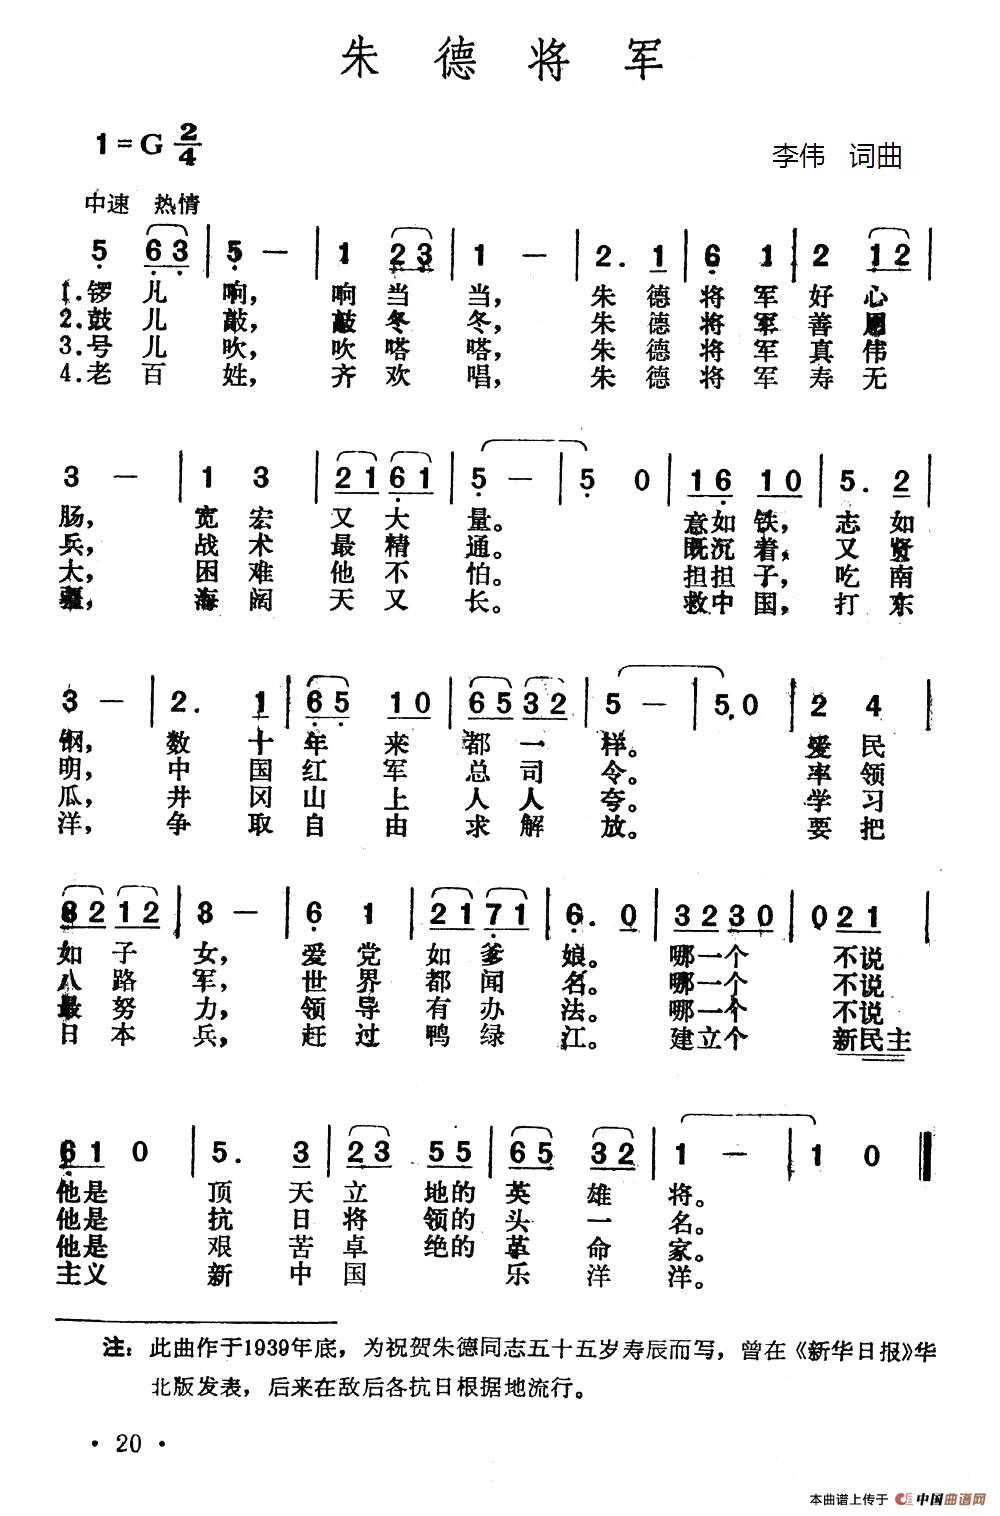 朱德将军
1=G 2/4
李伟 词曲
中速 热情
5 6 3 | 5 — | 1 2 3 | 1 — | 2. 1 | 6 1 | 2 1 2 |
1.锣儿响, 响当当, 朱德将军好心
2.鼓儿敲, 敲冬冬, 朱德将军善
3.号儿吹, 吹嗒嗒, 朱德将军真伟
4.老百姓, 齐欢唱, 朱德将军寿无
3 — | 1 3 | 2 1 6 1 | 5 — | 5 0 | 1 6 1 0 | 5. 2 |
肠, 宽宏又大量。 意如铁, 志如
兵, 战术最精通。 既沉着, 又贤
大, 困难他不怕。 担担子, 吃南
疆, 海阔天又长。 救中国, 打东
3 — | 2. 1 | 6 5 1 0 | 6 5 3 2 | 5 — | 5. 0 | 2 4 |
钢, 数十年来都一样。 爱民
明, 中国红军总司令。 率领
瓜, 井冈山上人人夸。 学习
洋, 争取自由求解放。 要把
3 2 1 2 | 3 — | 6 1 | 2 1 7 1 | 6. 0 | 3 2 3 0 | 0 2 1 |
如子女, 爱党如爹娘。 哪一个 不说
八路军, 世界都闻名。 哪一个 不说
最努力, 领导有办法。 哪一个 不说
日本兵, 赶过鸭绿江。 建立个 新民主
6 1 0 | 5. 3 | 2 3 5 5 | 6 5 3 2 | 1 — | 1 0 ‖
他是 顶天立地的英雄将。
他是 抗日将领的头一名。
他是 艰苦卓绝的革命家。
主义 新中国 乐洋洋。
注: 此曲作于1939年底，为祝贺朱德同志五十五岁寿辰而写，曾在《新华日报》华
北版发表，后来在敌后各抗日根据地流行。
· 20 ·
本曲谱上传于 中国曲谱网